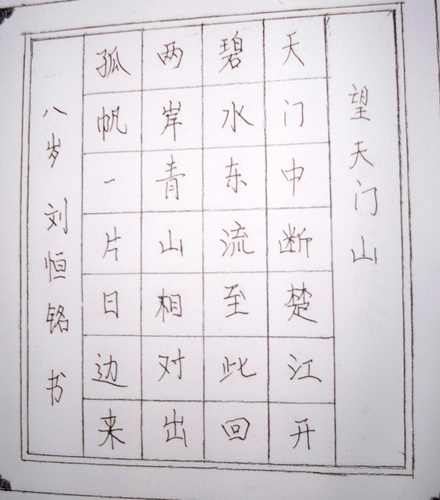 望天门山
天门中断楚江开
碧水东流至此回
两岸青山相对出
孤帆一片日边来
八岁刘恒铭书